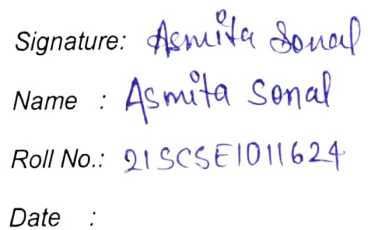 Signature: Asmita Sonal
Name : Asmita Sonal
Roll No.: 21SCSE1011624
Date :